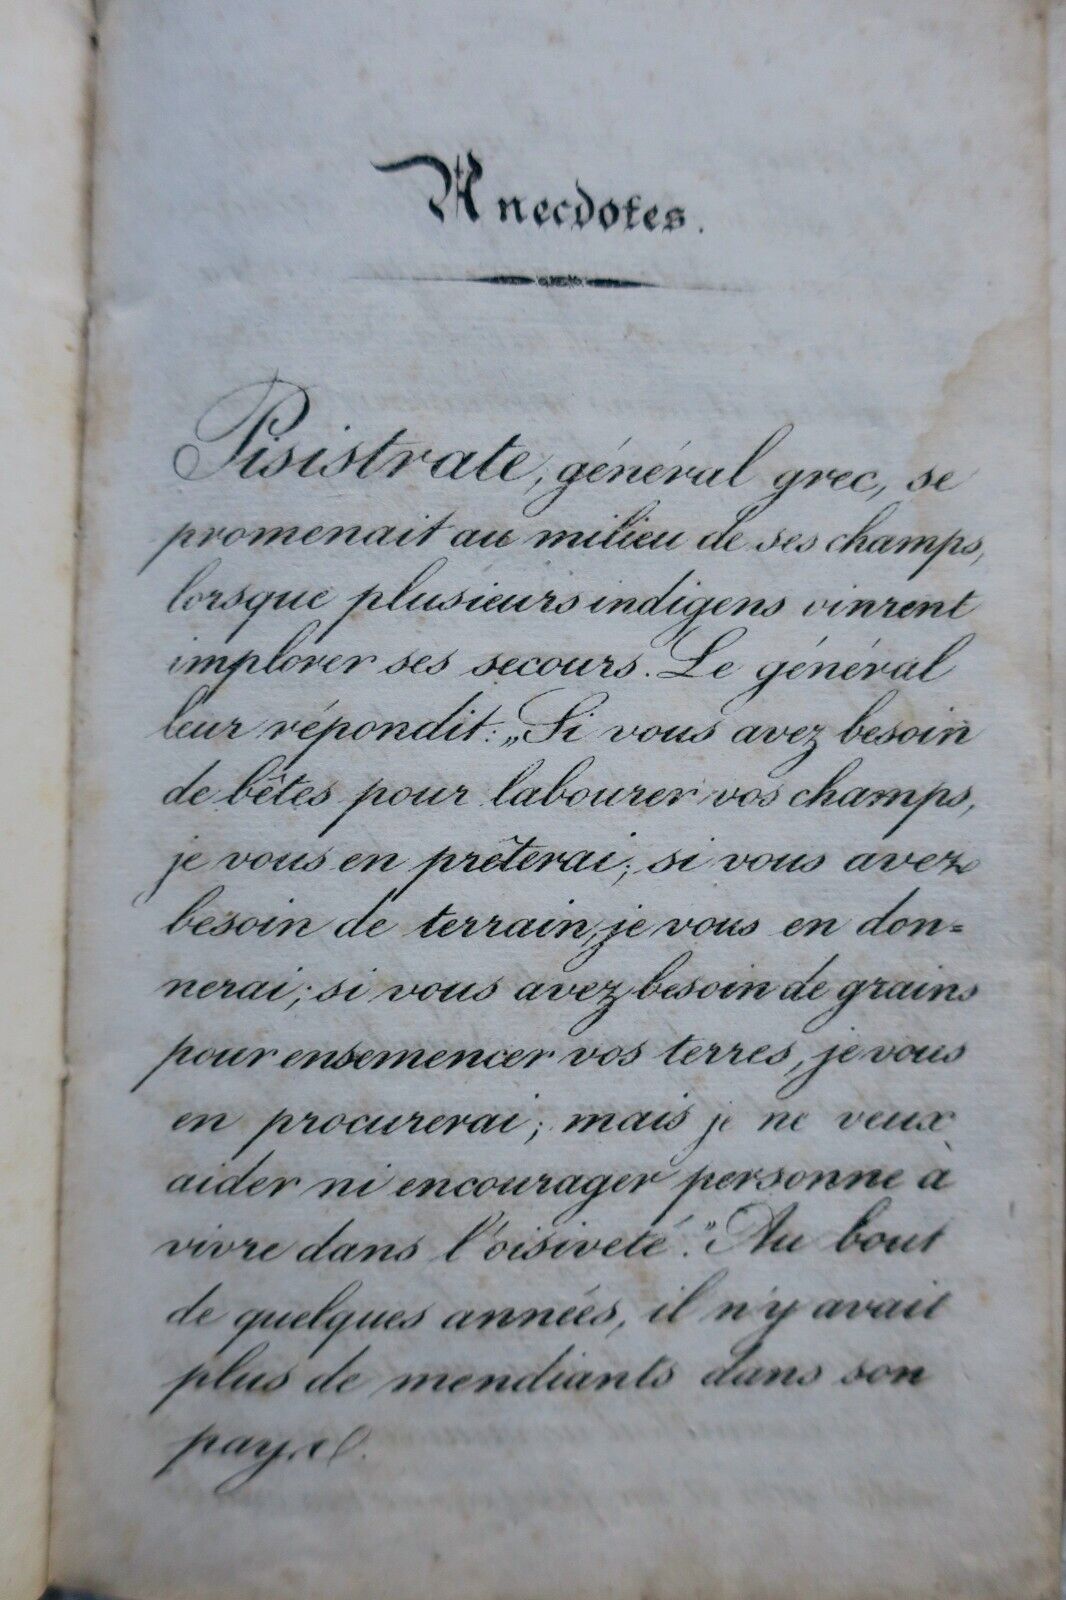 Anecdotes.
Pisistrate, général grec, se
promenait au milieu de ses champs,
lorsque plusieurs indigens vinrent
implorer ses secours. Le général
leur répondit: „Si vous avez besoin
de bêtes pour labourer vos champs,
je vous en prêterai; si vous avez
besoin de terrain, je vous en don=
nerai; si vous avez besoin de grains
pour ensemencer vos terres, je vous
en procurerai; mais je ne veux
aider ni encourager personne à
vivre dans l'oisiveté." Au bout
de quelques années, il n'y avait
plus de mendiants dans son
pays.